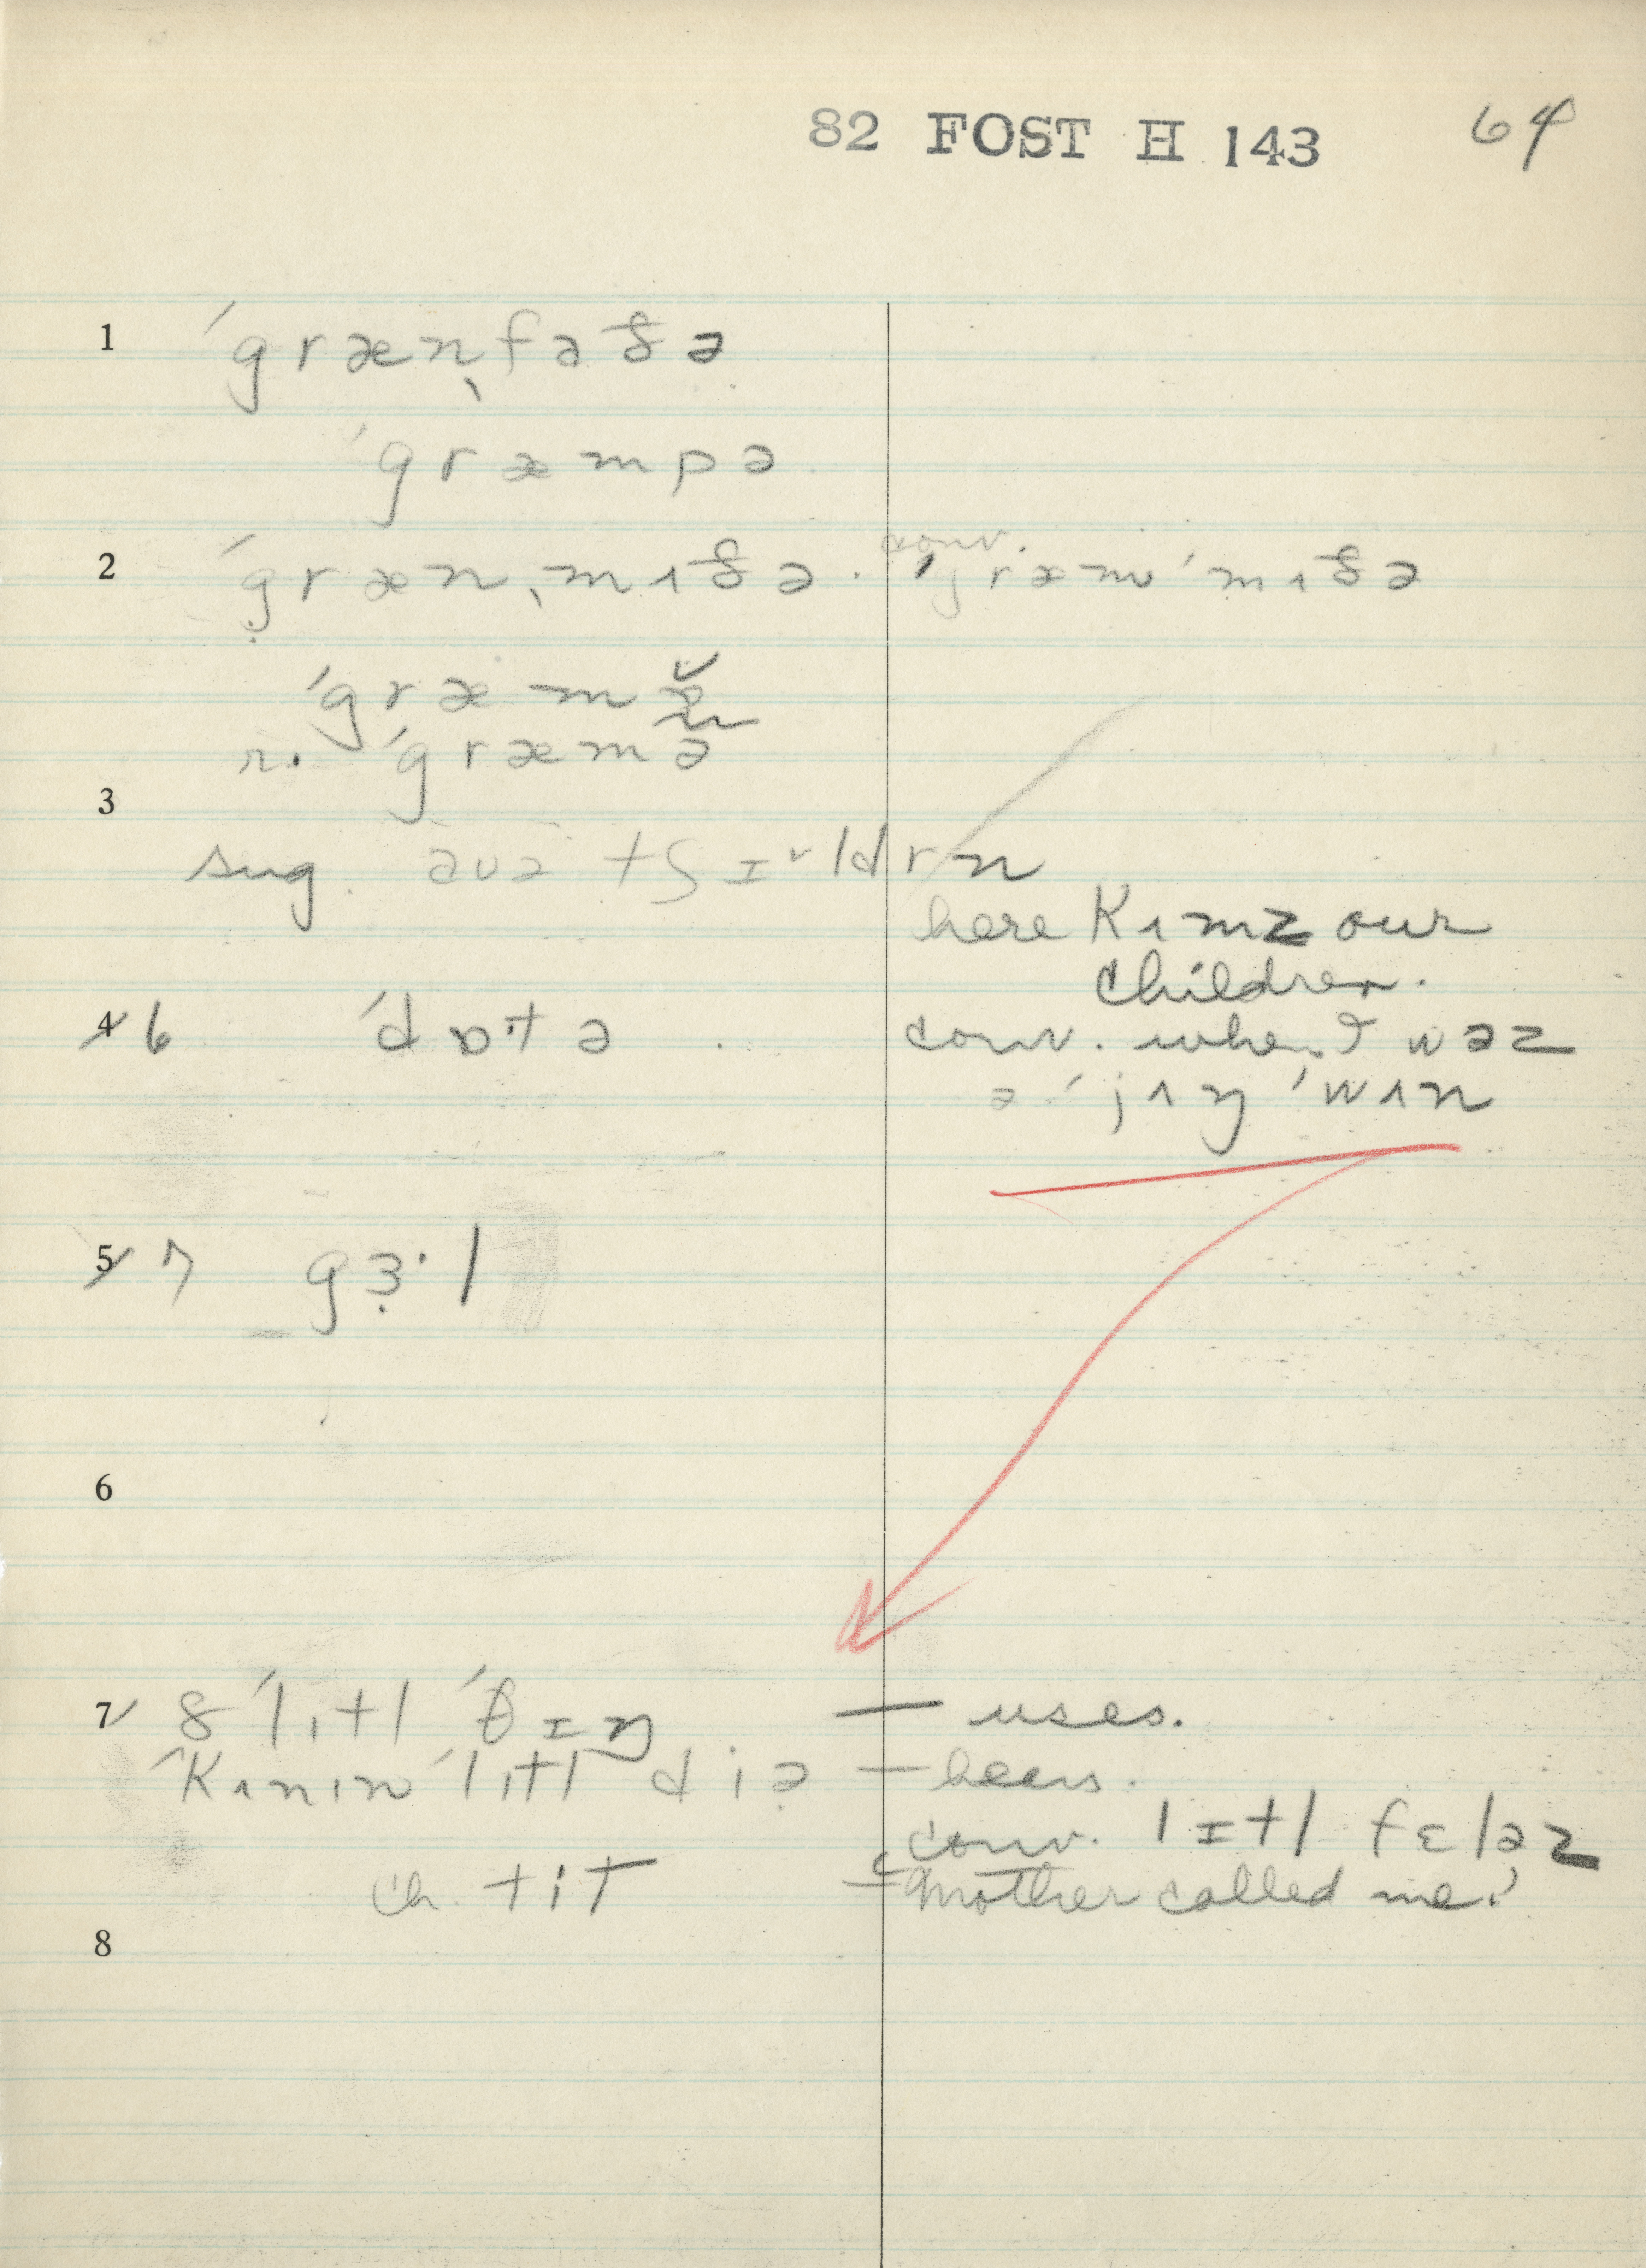 82 FOST H 143 64
1 ˈgrænˌfaðə
ˈgræmpə
2 ˈgrænˌmʌðə. conv. ˈgræmˈmʌðə
ˈgræmæ
r. ˈgræmə
3
sug. auə tʃɪldrn
here Kʌmz our
Children.
4 6 ˈdɒtə. conv. when I wəz
ə ˈjʌŋ ˈwʌn
5 7 gɜ·l
6
7 8 ˈlɪtl ˈθɪŋ — uses.
ˈKʌnɪn ˈlɪtl diə — hears.
conv. lɪtl fɛləz
ch. tit — Mother called me.
8